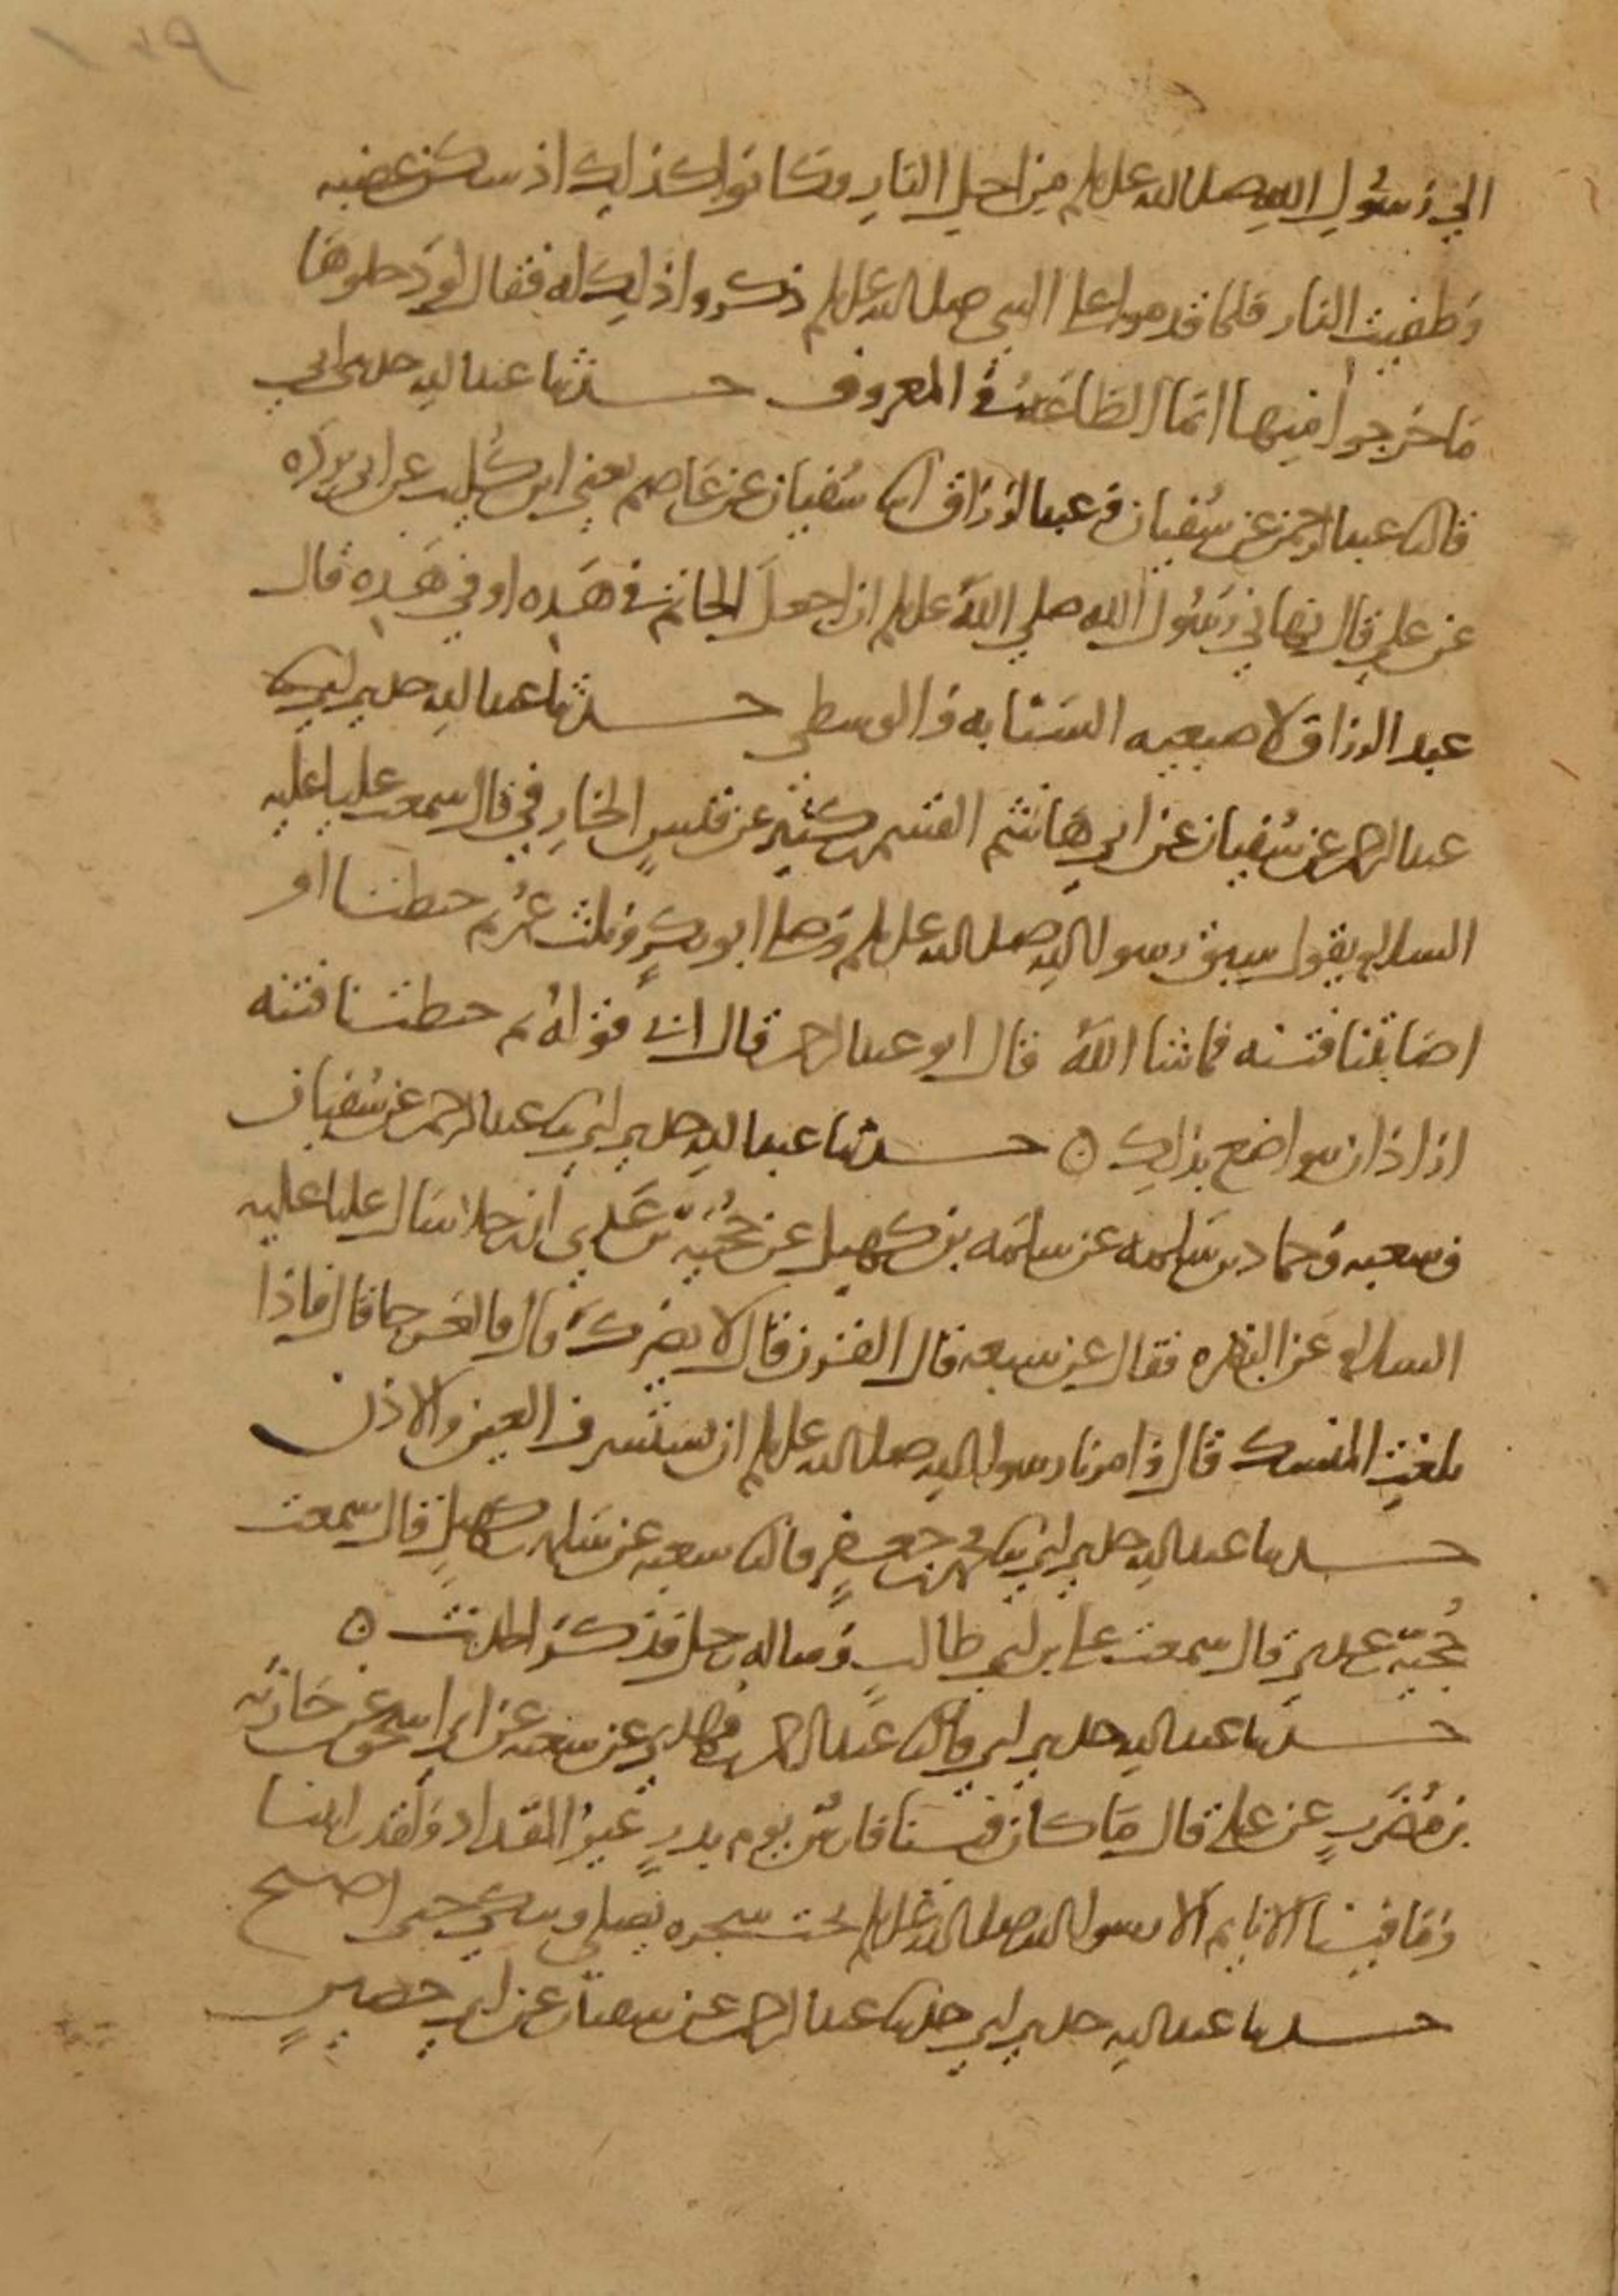 الي رسول الله صلى الله عليه وسلم من اجل النار وكانوا كذلك اذ سكن غضبه
وطفيت النار فلما قدموا على النبي صلى الله عليه وسلم ذكروا ذلك له فقال لو دخلوها
ما خرجوا منها انما الطاعة في المعروف حدثنا عبد الله حدثني ابي
قال عبد الرحمن عن سفيان وعبد الرزاق انا سفيان عن عاصم يعني ابن كليب عن ابي بردة
عن علي قال نهاني رسول الله صلي الله عليه وسلم ان اجعل الخاتم في هذه او في هذه قال
عبد الرزاق لاصبعيه السبابه والوسطى حدثنا عبد الله حدثني ابي
عبد الرحمن عن سفيان عن ابي هاشم القسم بن كثير عن قيس الخارفي قال سمعت عليا عليه
السلام يقول سبق رسول الله صلى الله عليه وسلم وصلى ابو بكر وثلث عمر ثم خبطتنا او
اصابتنا فتنه فما شا الله قال ابو عبد الرحمن قال ابي قوله ثم خبطتنا فتنه
اراد ان يتواضع بذلك ه حدثنا عبد الله حدثني ابي عبد الرحمن عن سفيان
وشعبه وحماد بن سلمه عن سلمه بن كهيل عن حجيه بن عدي ان رجلا سال عليا عليه
السلام عن البقره فقال عن سبعه قال القرن قال لا يضرك قال فالعرجا قال فاذا
بلغت المنسك قال وامرنا رسول الله صلى الله عليه وسلم ان نستشرف العين والاذن
حدثنا عبد الله حدثني ابي محمد بن جعفر قال شعبه عن سلمه بن كهيل قال سمعت
حجيه بن عدي قال سمعت علي بن ابي طالب وساله رجل فذكر الحديث ه
حدثنا عبد الله حدثني ابي قال عبد الرحمن بن مهدي عن شعبه عن ابي اسحق عن حارثه
بن مضرب عن علي قال ما كان فينا فارس يوم بدر غير المقداد ولقد رايتنا
وما فينا الا نايم الا رسول الله صلى الله عليه وسلم تحت شجره يصلي ويبكي حتى اصبح
حدثنا عبد الله حدثني ابي حدثنا عبد الرحمن عن سفيان عن ابي حصين